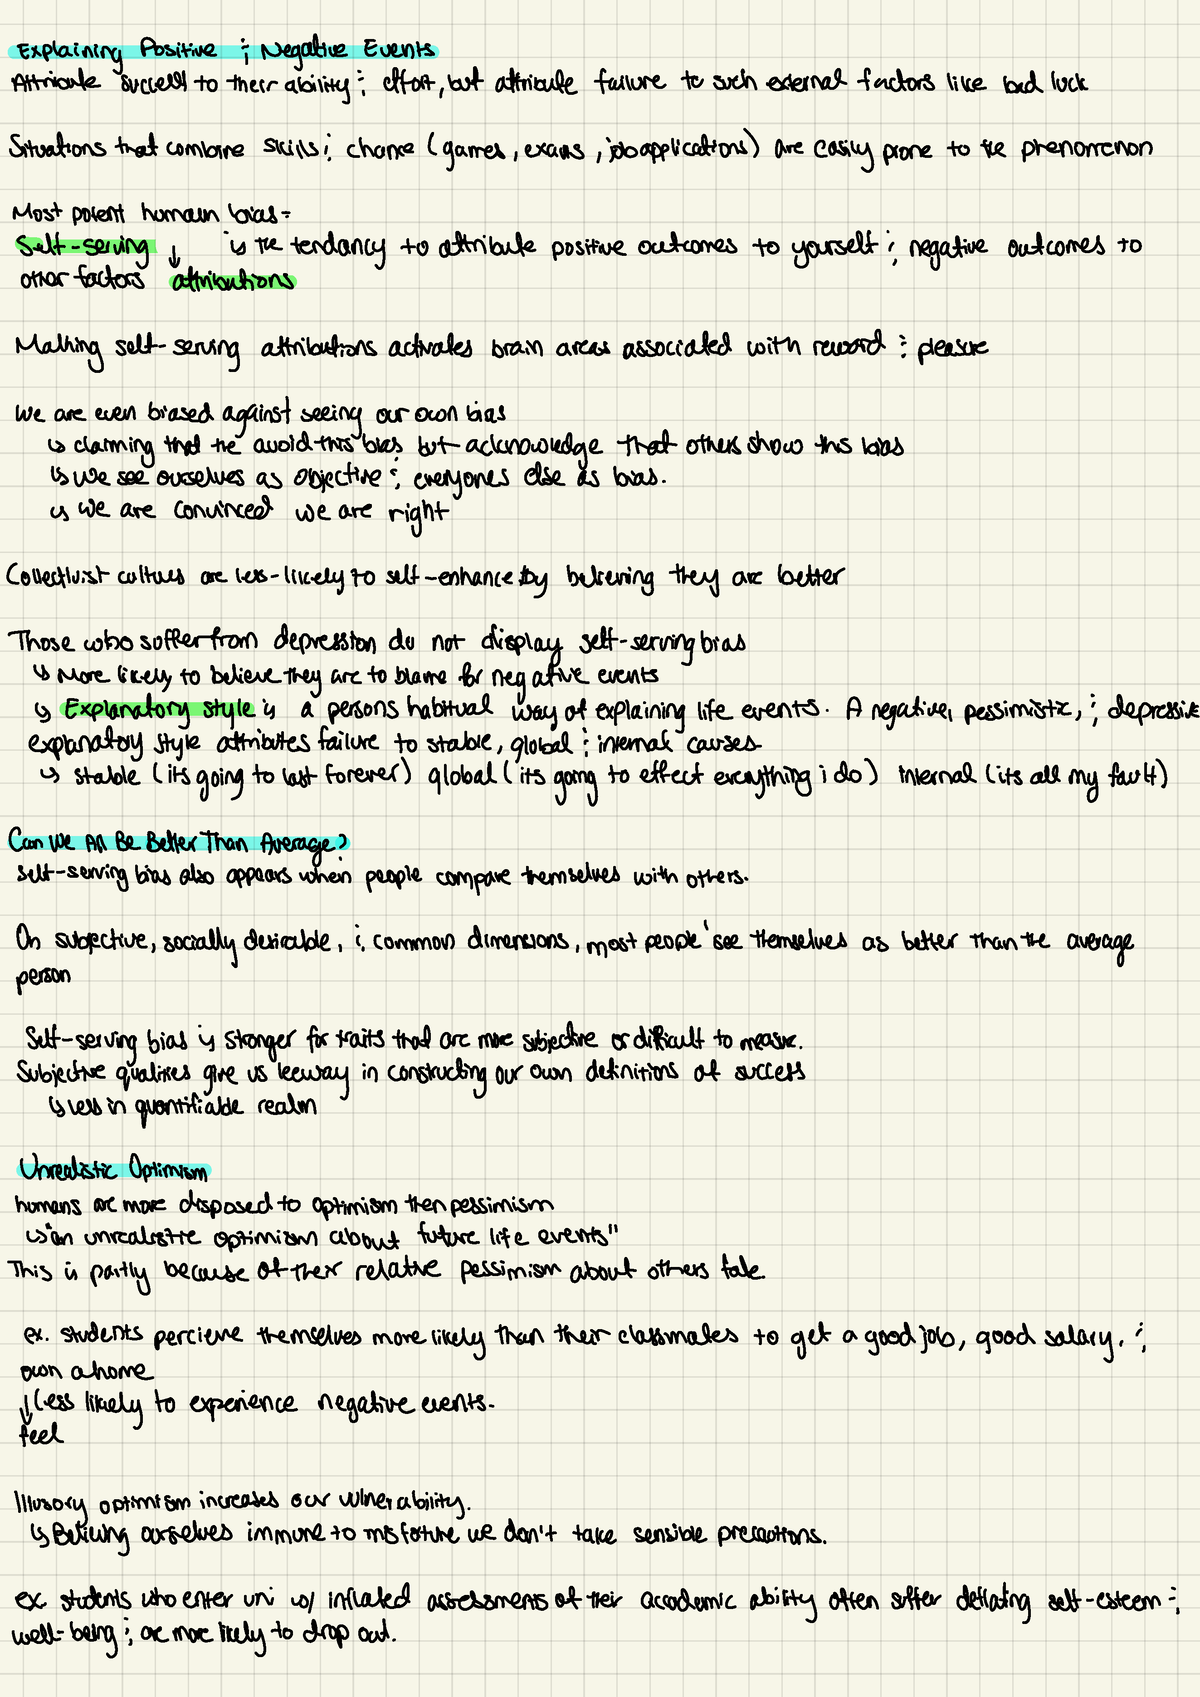 Explaining Positive & Negative Events
Attribute success to their ability & effort, but attribute failure to such external factors like bad luck
Situations that combine skills & chance (games, exams, job applications) are easily prone to the phenomenon
Most potent human bias-
Self-serving ↓ is the tendancy to attribute positive outcomes to yourself & negative outcomes to
other factors attributions
Making self-serving attributions activates brain areas associated with reward & pleasure
We are even biased against seeing our own bias
↳ claiming that the avoid this bias but acknowledge that others show this bias
↳ We see ourselves as objective & everyones else as bias.
↳ We are convinced we are right
Collectivist cultures are less-likely to self-enhance by believing they are better
Those who suffer from depression do not display self-serving bias
↳ More likely to believe they are to blame for negative events
↳ Explanatory style is a persons habitual way of explaining life events. A negative, pessimistic, & depressive
explanatory style attributes failure to stable, global & internal causes
↳ stable (its going to last forever) global (its going to effect everything i do) internal (its all my fault)
Can We All Be Better Than Average?
self-serving bias also appears when people compare themselves with others.
On subjective, socially desirable, & common dimensions, most people see themselves as better than the average
person
Self-serving bias is stronger for traits that are more subjective or difficult to measure.
Subjective qualities give us leeway in constructing our own definitions of success
↳ less in quantifiable realm
Unrealistic Optimism
humans are more disposed to optimism then pessimism
↳ "an unrealistic optimism about future life events"
This is partly because of their relative pessimism about others fate.
ex. students percieve themselves more likely than their classmates to get a good job, good salary, &
own a home
↓ less likely to experience negative events.
feel
Illusory optimism increases our vulnerability.
↳ Beliving ourselves immune to misfoture we don't take sensible precautions.
ex. students who enter uni w/ inflated assessments of their accademic ability often suffer deflating self-esteem &
well-being & are more likely to drop out.